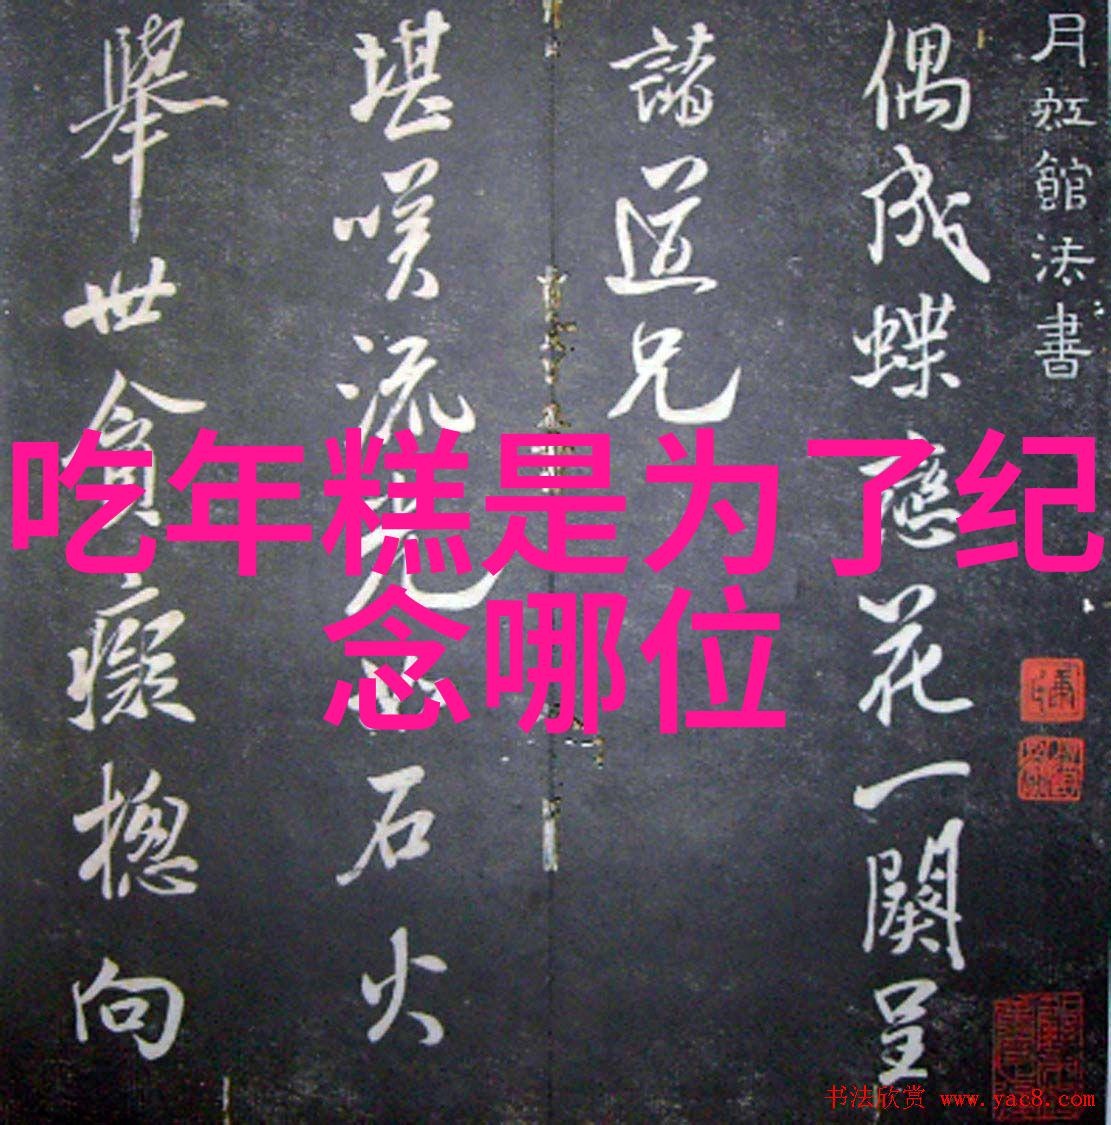 月虹館法書
偶成蝶戀花一闋呈
諸道兄
堪嘆流光如石火
舉世貪癡摠向
吃年糕是为了纪
念哪位
书法欣赏 www.yac8.com